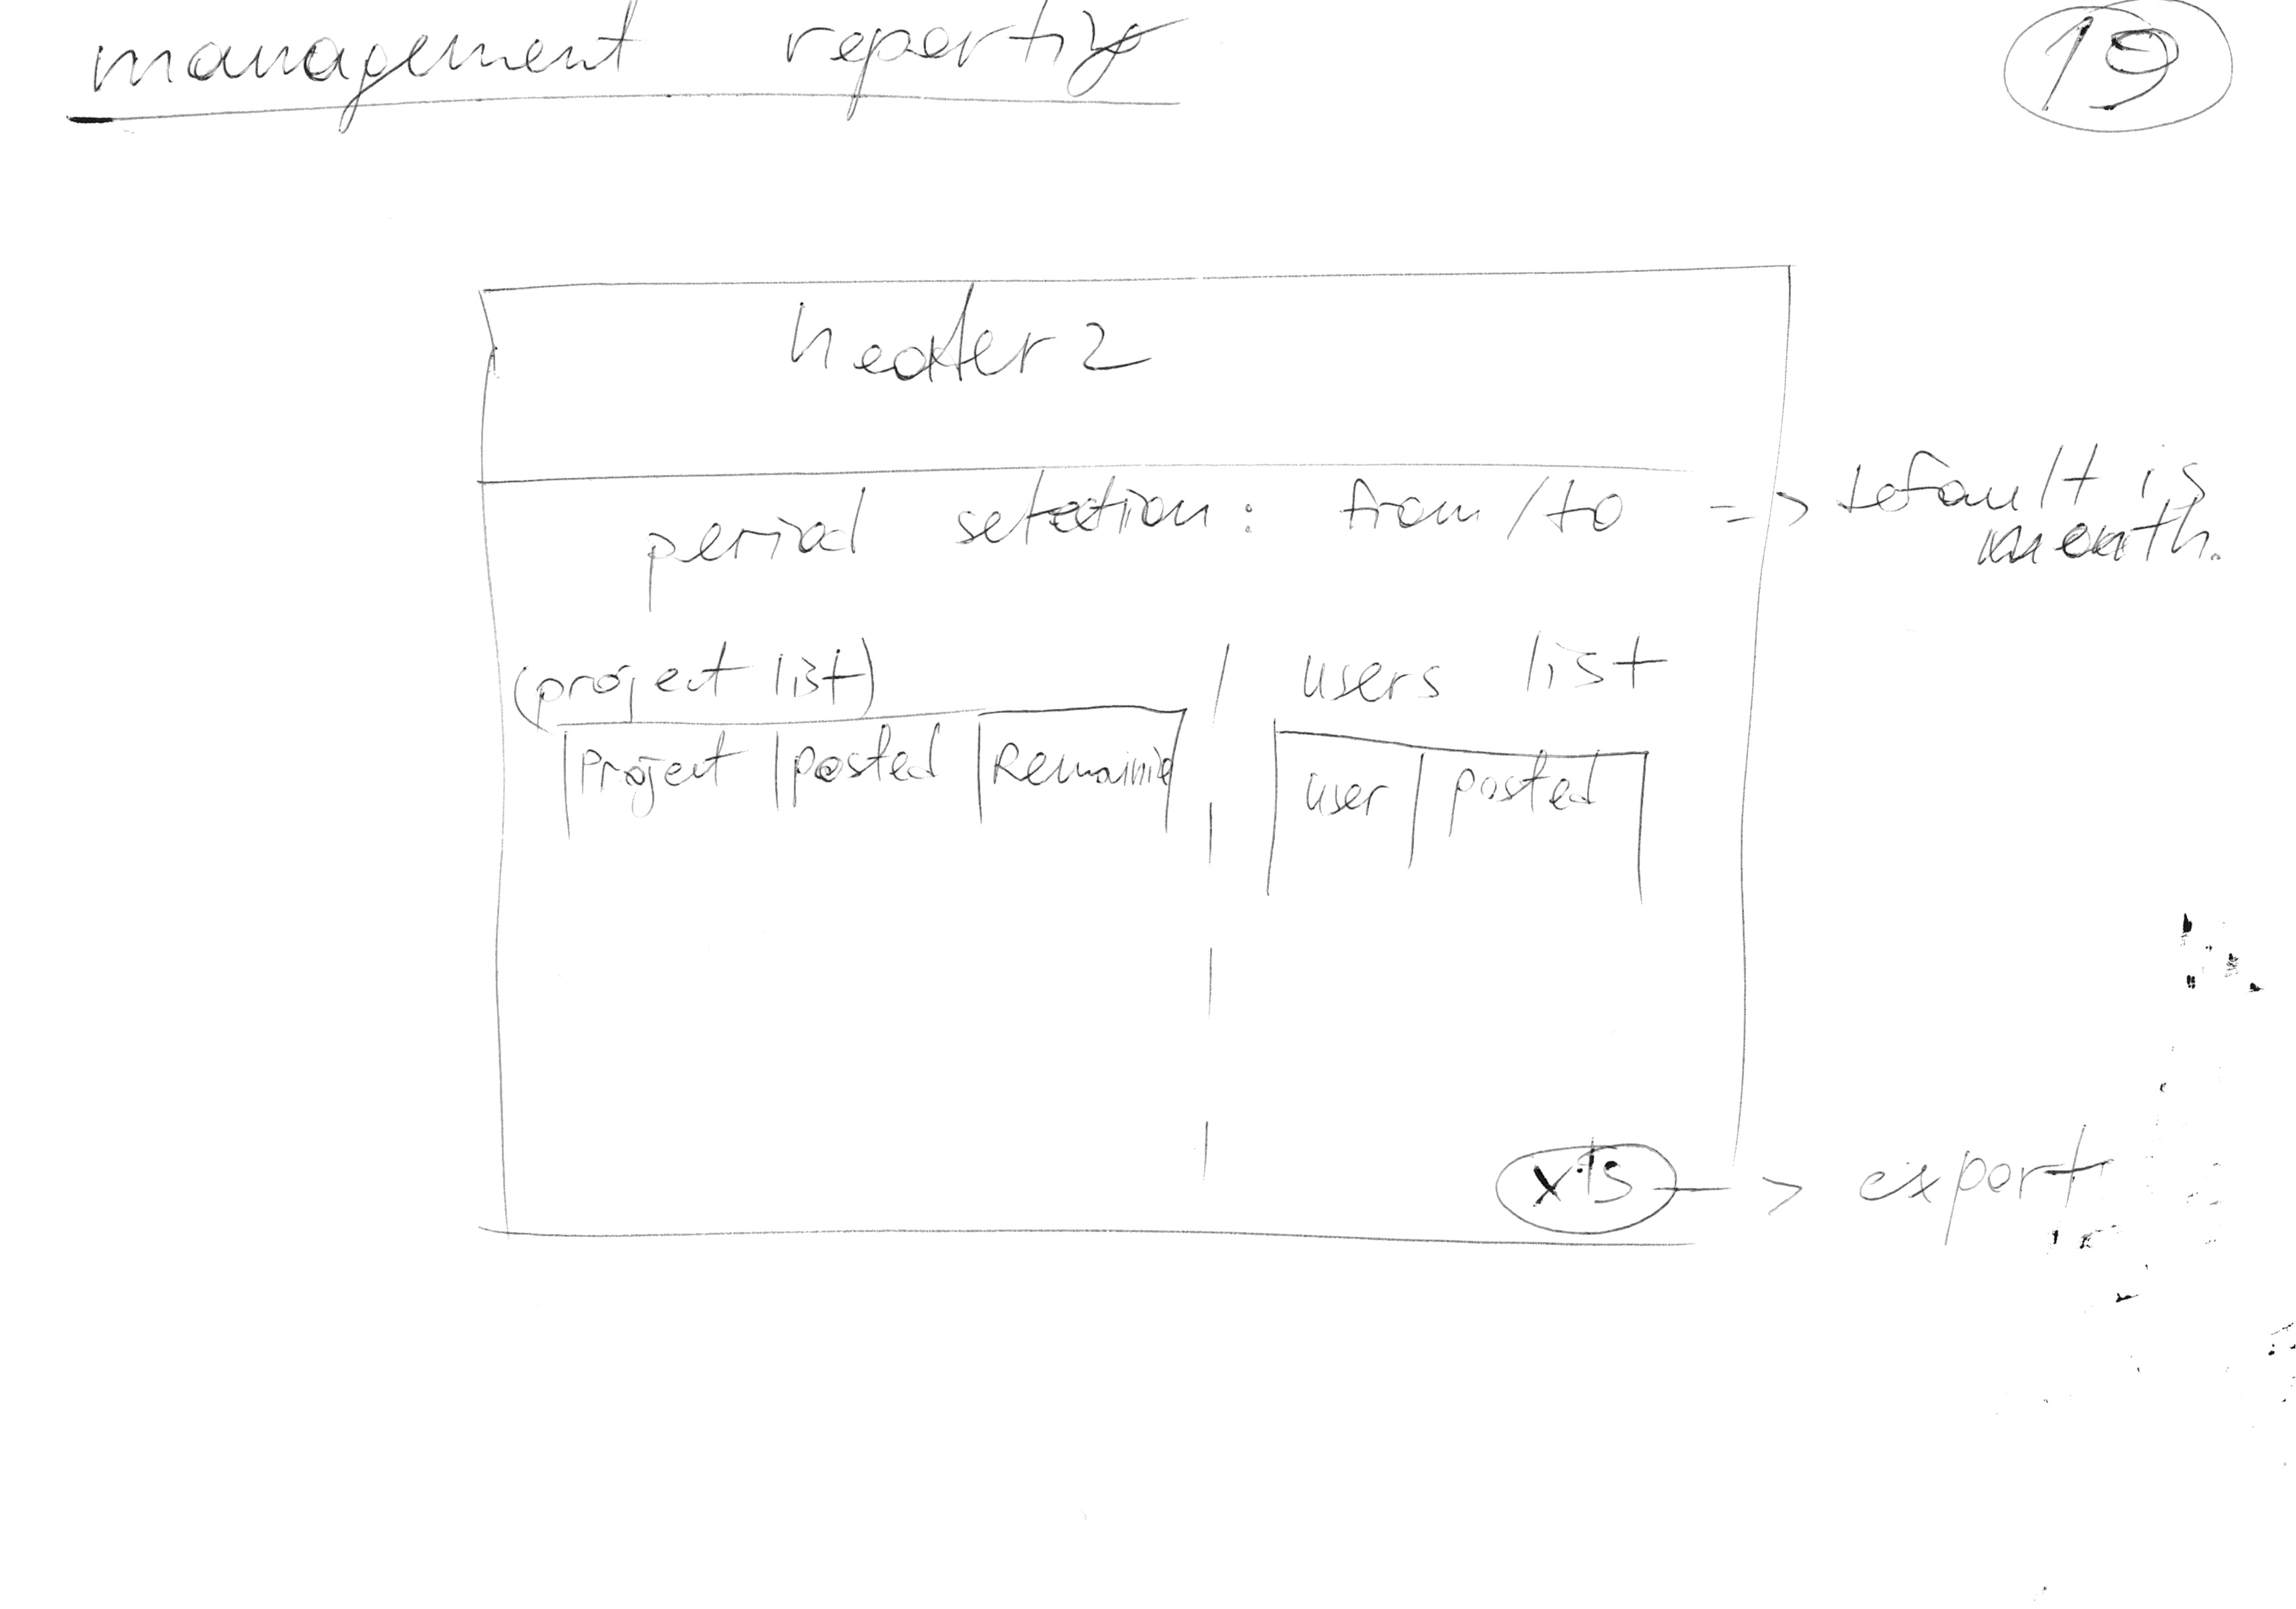 management reporting
19
header 2
period selection: from/to => default is
month.
(project list) / users list
Project | posted | Remainig
user | posted
xls -> export